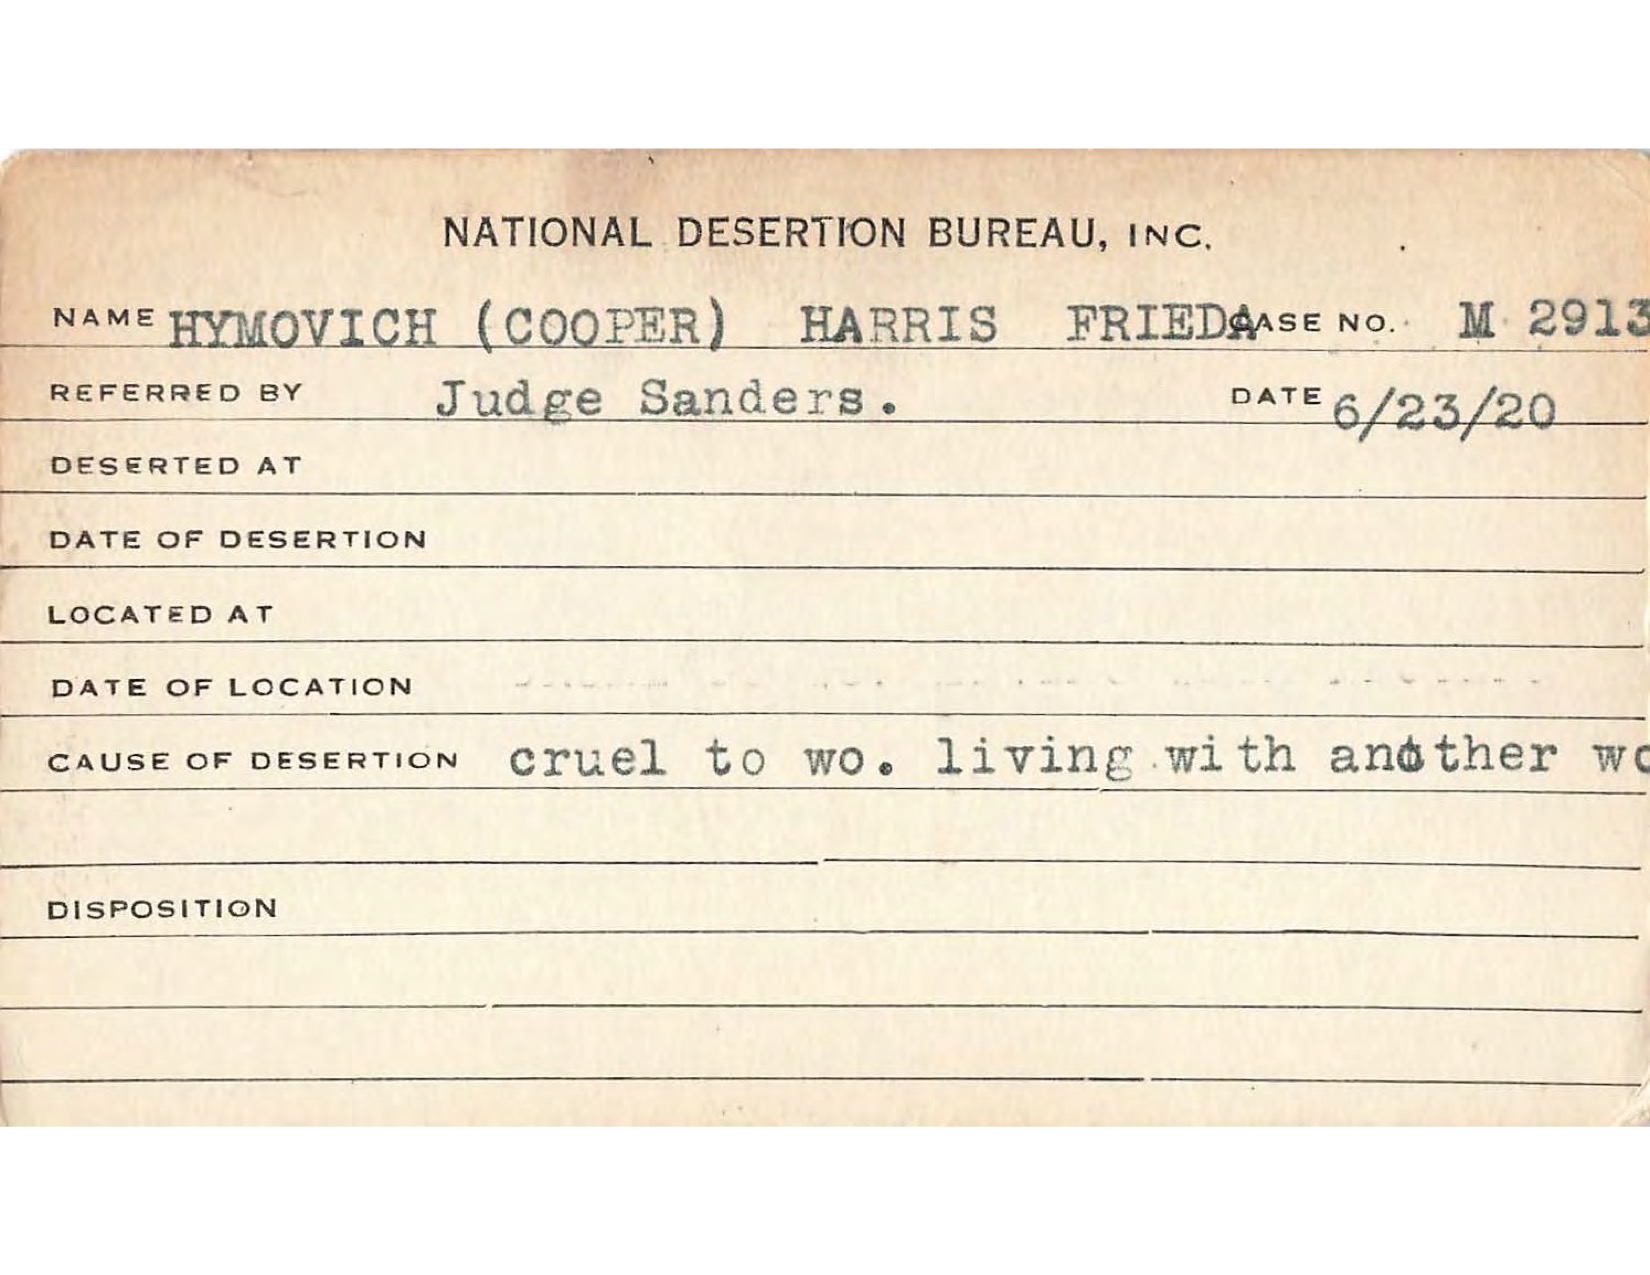 NATIONAL DESERTION BUREAU, INC.
NAME HYMOVICH (COOPER) HARRIS FRIEDA CASE NO. M 2913
REFERRED BY Judge Sanders. DATE 6/23/20
DESERTED AT
DATE OF DESERTION
LOCATED AT
DATE OF LOCATION
CAUSE OF DESERTION cruel to wo. living with another wo
DISPOSITION